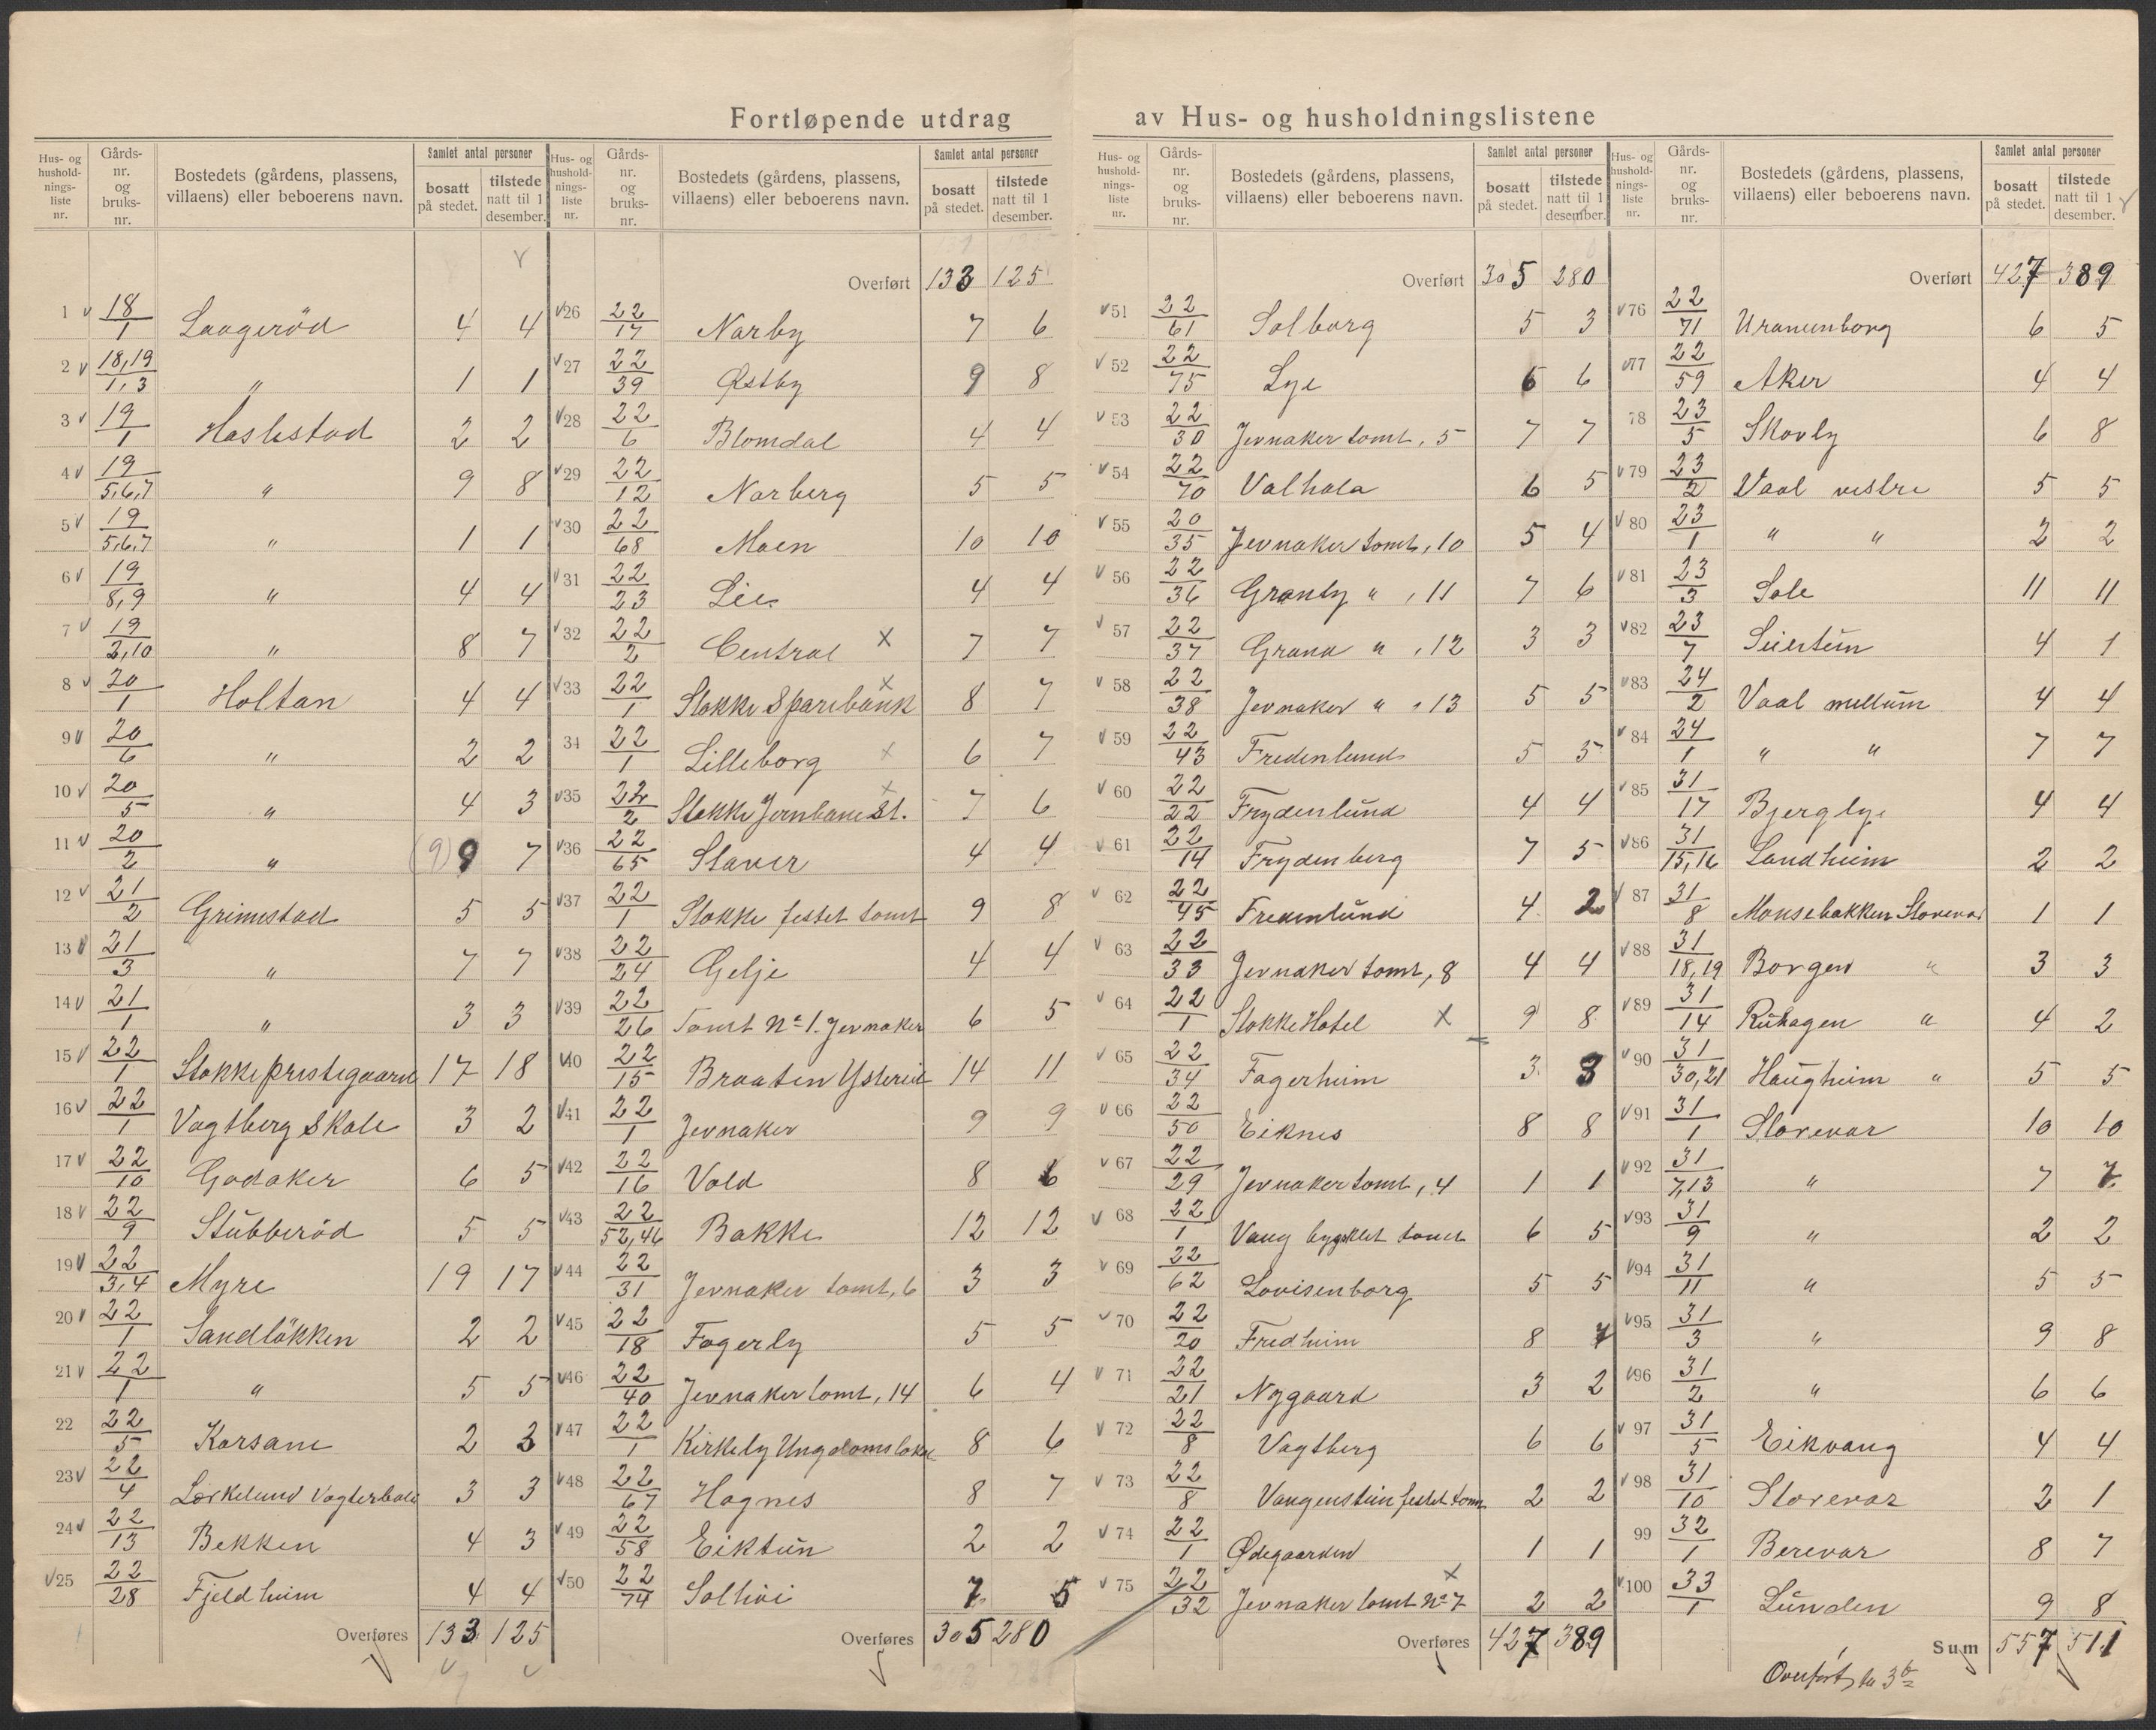 Fortløpende utdrag av Hus- og husholdningslistene
Hus- og husholdningsliste nr. | Gårds-nr. og bruks-nr. | Bostedets (gårdens, plassens, villaens) eller beboerens navn. | Samlet antal personer: bosatt på stedet. | tilstede natt til 1 desember.
1 | 18/1 | Laageröd | 4 | 4
2 | 18,19/1,3 | " | 1 | 1
3 | 19/1 | Haslestad | 2 | 2
4 | 19/5,6,7 | " | 9 | 8
5 | 19/5,6,7 | " | 1 | 1
6 | 19/8,9 | " | 4 | 4
7 | 19/2,10 | " | 8 | 7
8 | 20/1 | Holtan | 4 | 4
9 | 20/6 | " | 2 | 2
10 | 20/5 | " | 4 | 3
11 | 20/2 | " | (9) 9 | 7
12 | 21/2 | Grimestad | 5 | 5
13 | 21/3 | " | 7 | 7
14 | 21/1 | " | 3 | 3
15 | 22/1 | Stokke prestegaard | 17 | 18
16 | 22/1 | Vagtberg Skole | 3 | 2
17 | 22/10 | Godaker | 6 | 5
18 | 22/9 | Stubberöd | 5 | 5
19 | 22/3,4 | Myre | 19 | 17
20 | 22/1 | Sandlökken | 2 | 2
21 | 22/1 | " | 5 | 5
22 | 22/5 | Korsane | 2 | 3
23 | 22/4 | Lerkelund Vogterbolig | 3 | 3
24 | 22/13 | Bekken | 4 | 3
25 | 22/28 | Fjeldheim | 4 | 4
Overføres 133 125
Hus- og husholdningsliste nr. | Gårds-nr. og bruks-nr. | Bostedets (gårdens, plassens, villaens) eller beboerens navn. | Samlet antal personer: bosatt på stedet. | tilstede natt til 1 desember.
Overført 133 125
26 | 22/17 | Narby | 7 | 6
27 | 22/39 | Østby | 9 | 8
28 | 22/6 | Blomdal | 4 | 4
29 | 22/12 | Norberg | 5 | 5
30 | 22/68 | Moen | 10 | 10
31 | 22/23 | Lie | 4 | 4
32 | 22/2 | Central x | 7 | 7
33 | 22/1 | Stokke Sparebank x | 8 | 7
34 | 22/1 | Lilleborg x | 6 | 7
35 | 22/2 | Stokke Jernbane St. x | 7 | 6
36 | 22/65 | Staver | 4 | 4
37 | 22/1 | Stokke festet tomt | 9 | 8
38 | 22/24 | Gelje | 4 | 4
39 | 22/26 | Tomt No 1. Jevnaker | 6 | 5
40 | 22/15 | Braaten Ysteriet | 14 | 11
41 | 22/1 | Jevnaker | 9 | 9
42 | 22/16 | Vold | 8 | 6
43 | 22/52,46 | Bakke | 12 | 12
44 | 22/31 | Jevnaker tomt, 6 | 3 | 3
45 | 22/18 | Fagerly | 5 | 5
46 | 22/40 | Jevnaker tomt, 14 | 6 | 4
47 | 22/1 | Kirkely Ungdomslokal | 8 | 6
48 | 22/67 | Hagnes | 8 | 7
49 | 22/58 | Eiktun | 2 | 2
50 | 22/74 | Solhöi | 7 | 5
Overføres 305 280
Hus- og husholdningsliste nr. | Gårds-nr. og bruks-nr. | Bostedets (gårdens, plassens, villaens) eller beboerens navn. | Samlet antal personer: bosatt på stedet. | tilstede natt til 1 desember.
Overført 305 280
51 | 22/61 | Solborg | 5 | 3
52 | 22/75 | Lye | 6 | 6
53 | 22/30 | Jevnaker tomt, 5 | 7 | 7
54 | 22/70 | Valhala | 6 | 5
55 | 20/35 | Jevnaker tomt, 10 | 5 | 4
56 | 22/36 | Granly " , 11 | 7 | 6
57 | 22/37 | Grand " , 12 | 3 | 3
58 | 22/38 | Jevnaker " , 13 | 5 | 5
59 | 22/43 | Fredenlund | 5 | 5
60 | 22/22 | Frydenlund | 4 | 4
61 | 22/14 | Frydenberg | 7 | 5
62 | 22/45 | Fredenlund | 4 | 2
63 | 22/33 | Jevnaker tomt, 8 | 4 | 4
64 | 22/1 | Stokke Hotel x | 9 | 8
65 | 22/34 | Fagerheim | 3 | 3
66 | 22/50 | Eiknes | 8 | 8
67 | 22/29 | Jevnaker tomt, 4 | 1 | 1
68 | 22/1 | Vang bygslet tomt | 6 | 5
69 | 22/62 | Lovisenborg | 5 | 5
70 | 22/20 | Fredheim | 8 | 7
71 | 22/21 | Nygaard | 3 | 2
72 | 22/8 | Vagtberg | 6 | 6
73 | 22/8 | Vangenstein festet tomt | 2 | 2
74 | 22/1 | Ødegaarden | 1 | 1
75 | 22/32 | Jevnaker tomt No 7 x | 2 | 2
Overføres 427 389
Hus- og husholdningsliste nr. | Gårds-nr. og bruks-nr. | Bostedets (gårdens, plassens, villaens) eller beboerens navn. | Samlet antal personer: bosatt på stedet. | tilstede natt til 1 desember.
Overført 427 389
76 | 22/71 | Uranienborg | 6 | 5
77 | 22/59 | Aker | 4 | 4
78 | 23/5 | Skovly | 6 | 8
79 | 23/2 | Vaal vestre | 5 | 5
80 | 23/1 | " " | 2 | 2
81 | 23/3 | Sole | 11 | 11
82 | 23/7 | Seiestun | 4 | 1
83 | 24/2 | Vaal mellum | 4 | 4
84 | 24/1 | " " | 7 | 7
85 | 31/17 | Bjerglye | 4 | 4
86 | 31/15,16 | Sandheim | 2 | 2
87 | 31/8 | Monsebakken Storevar | 1 | 1
88 | 31/18,19 | Borgen " | 3 | 3
89 | 31/14 | Ruhagen " | 4 | 2
90 | 31/30,21 | Haugheim " | 5 | 5
91 | 31/1 | Storevar | 10 | 10
92 | 31/7,13 | " | 7 | 7
93 | 31/9 | " | 2 | 2
94 | 31/11 | " | 5 | 5
95 | 31/3 | " | 9 | 8
96 | 31/2 | " | 6 | 6
97 | 31/5 | Eikvang | 4 | 4
98 | 31/10 | Storevar | 2 | 1
99 | 32/1 | Berevar | 8 | 7
100 | 33/1 | Lunden | 9 | 8
Sum 557 511
Overført